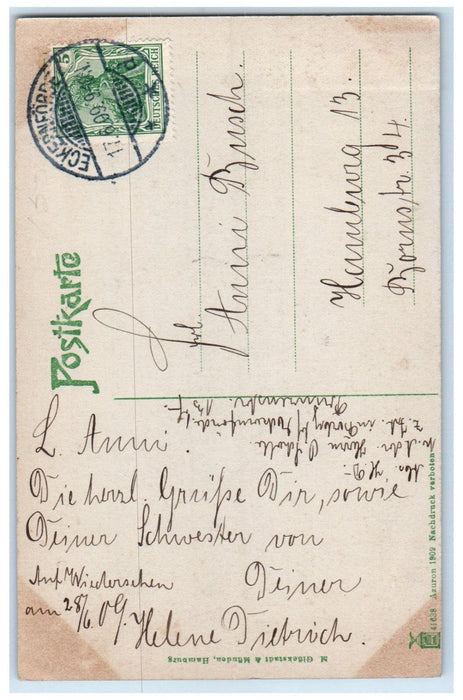 DEUTSCHES REICH
5
ECKERNFÖRDE
17.6.09
Postkarte
Frl.
Anni Busch.
Hamburg 13.
Bornstr. 34.
L. Anni.
Die herzl. Grüße Dir, sowie
Deiner Schwester von
Deiner
Helene Dietrich.
Auf Wiedersehen
am 28/6.09.
M. Glückstadt & Münden, Hamburg
41638 Azuron 1902 Nachdruck verboten